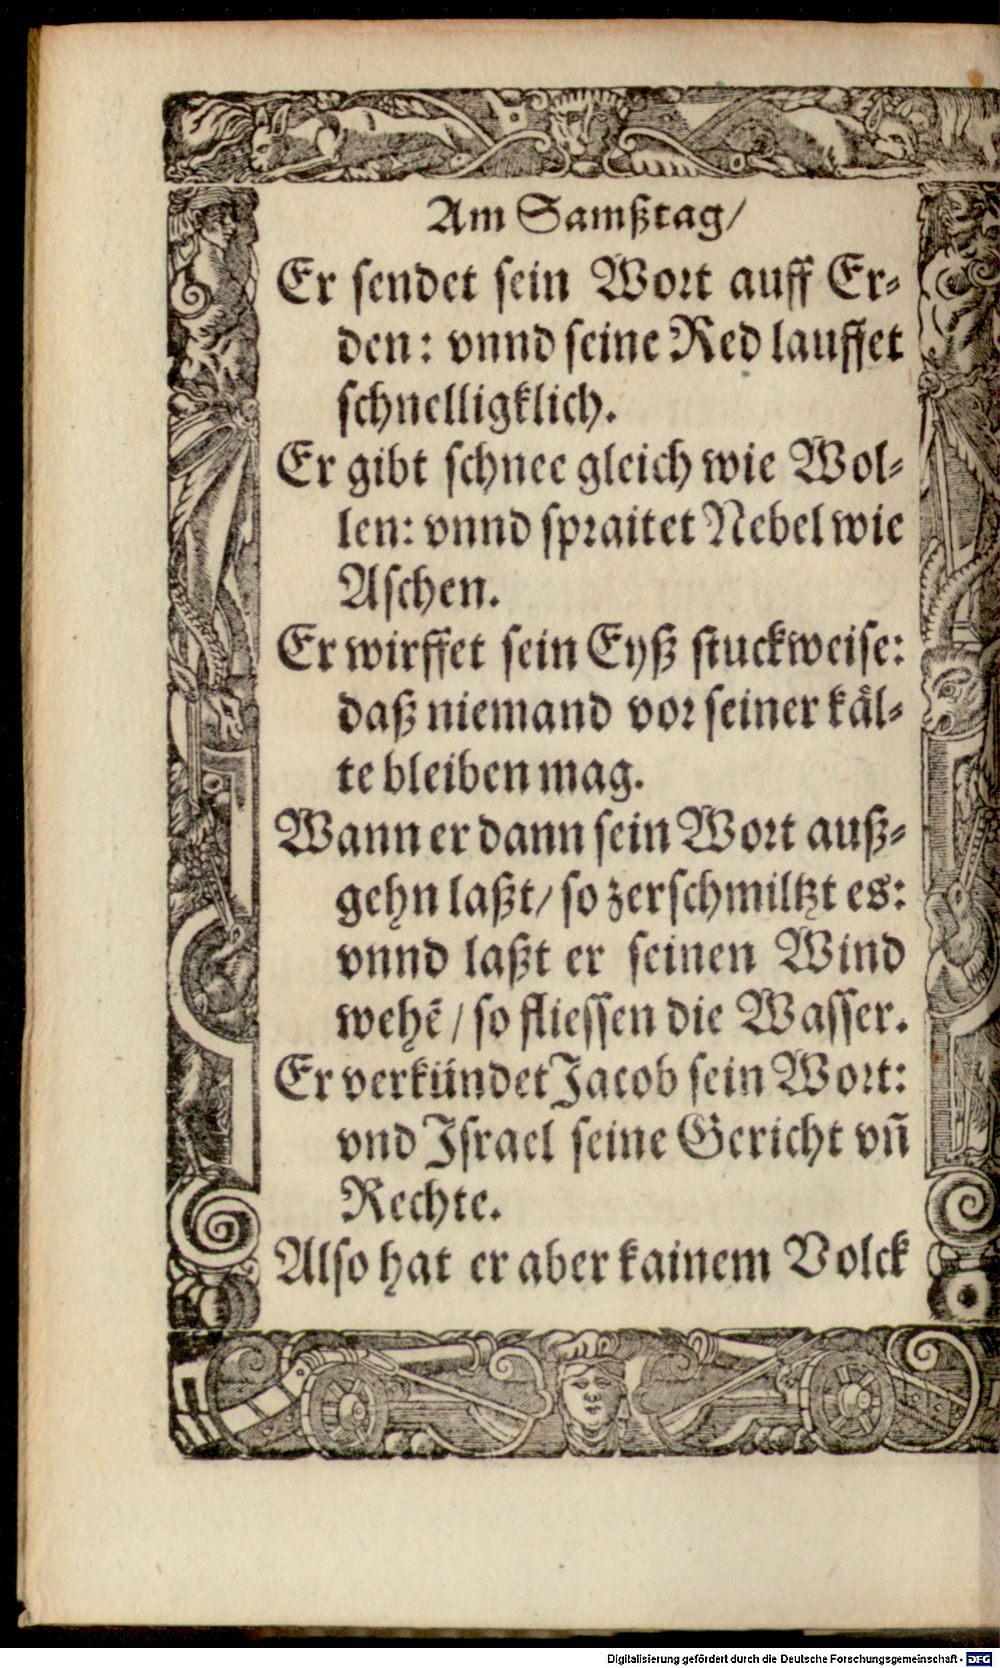 Am Samßtag/
Er sendet sein Wort auff Er-
den: vnnd seine Red lauffet
schnelligklich.
Er gibt schnee gleich wie Wol-
len: vnnd spraitet Nebel wie
Aschen.
Er wirffet sein Eyß stuckweise:
daß niemand vor seiner käl-
te bleiben mag.
Wann er dann sein Wort auß-
gehn laßt/ so zerschmiltzt es:
vnnd laßt er seinen Wind
wehẽ/ so fliessen die Wasser.
Er verkündet Jacob sein Wort:
vnd Israel seine Gericht vñ
Rechte.
Also hat er aber kainem Volck
Digitalisierung gefördert durch die Deutsche Forschungsgemeinschaft - DFG